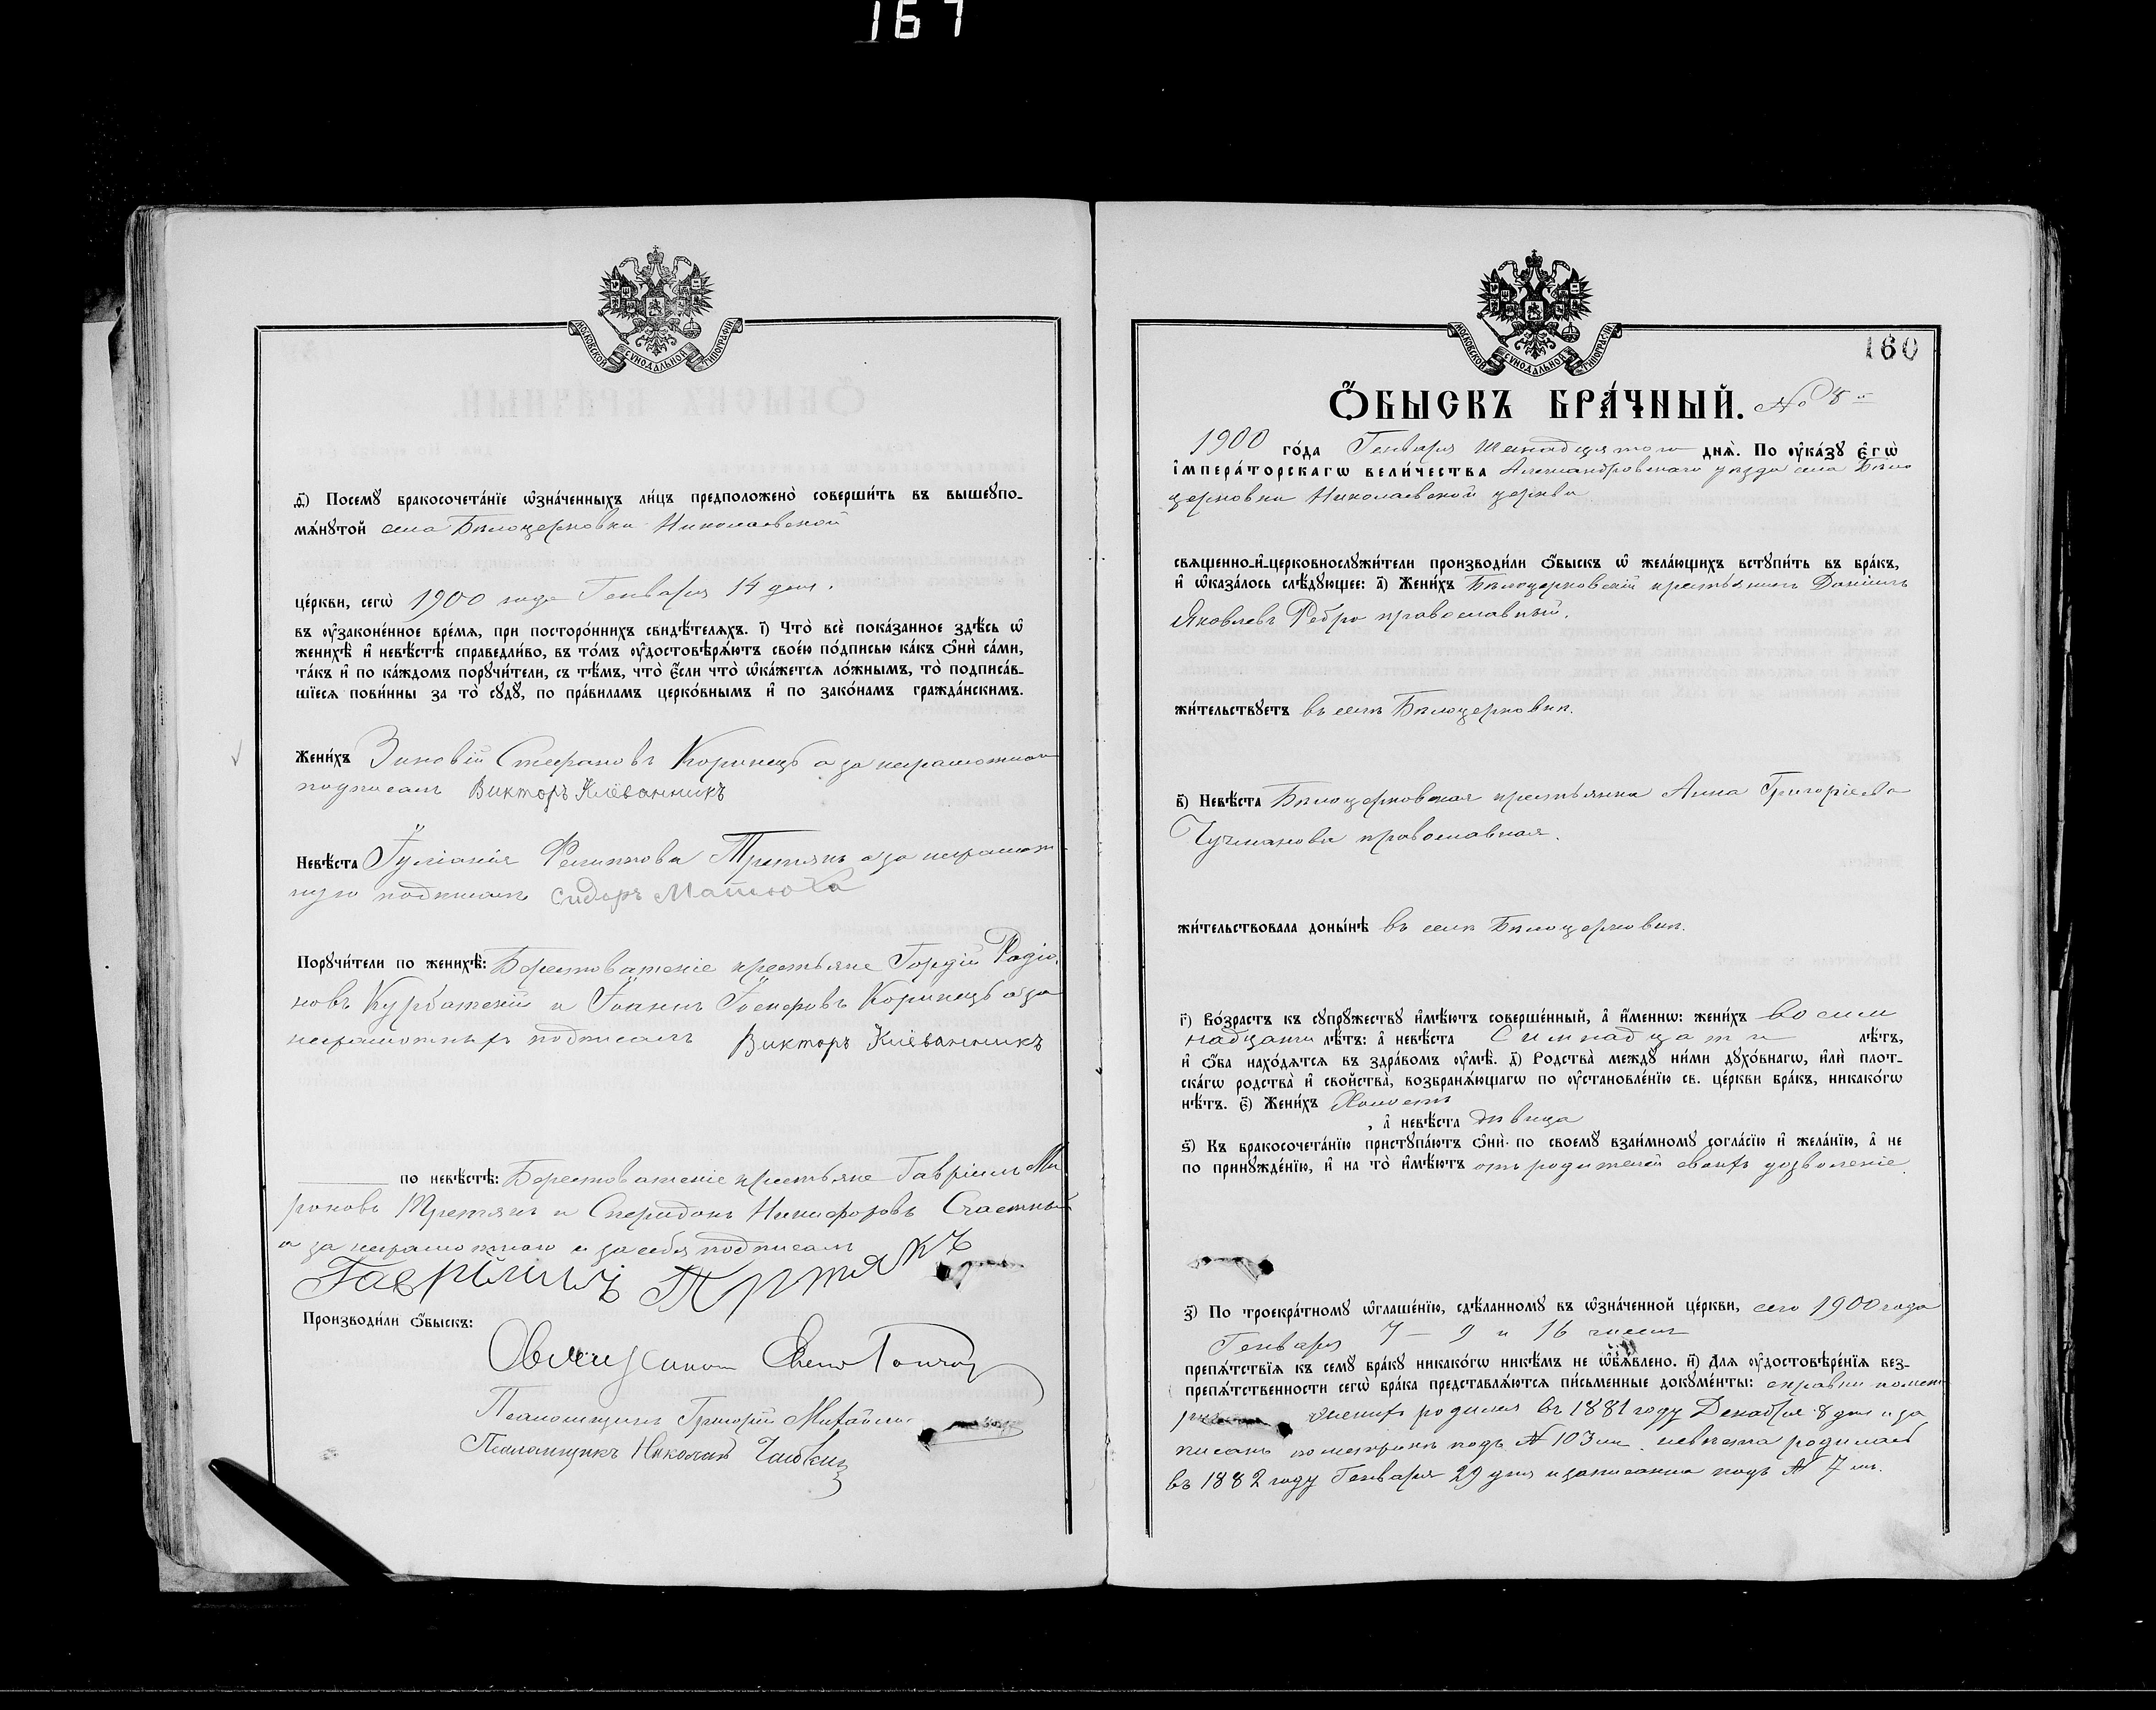 167
МОСКОВСКОЙ СУНОДАЛЬНОЙ ТИПОГРАФІИ
д҃і) Посемꙋ бракосочета́нїе ѡ҆зна́ченныхъ ли́цъ предположено̀ соверши́ть въ вышеупо-
мѧ́нꙋтой села Бѣлоцерковки Николаевской
це́ркви, сегѡ̀ 1900 года Генваря 14 дня.
въ оу҆законе́нное вре́мѧ, при посторо́ннихъ свидѣ́телѧхъ. і҃) Что̀ всѐ пока́занное здѣ́сь ѡ҆
женихѣ̀ и҆ невѣ́стѣ справедли́во, въ то́мъ оу҆достовѣрѧ́ютъ свое́ю по́дписью ка́къ ѻ҆нѝ са́ми,
та́къ и҆ по ка́ждомъ порꙋчи́тели, съ тѣ́мъ, что̀ є҆́сли что̀ ѡ҆ка́жетсѧ ло́жнымъ, то̀ подписа́в-
шїесѧ пови́нны за то̀ сꙋдꙋ̀, по пра́виламъ церко́внымъ и҆ по зако́намъ гражда́нскимъ.
Жени́хъ Зиновій Стефановъ Коринецъ а за неграмотнаго
подписалъ Викторъ Клёванникъ
Невѣ́ста Іуліанія Филиппова Третякъ а за неграмот
ную подписалъ Сидоръ Матюха
Порꙋчи́тели по женихѣ̀: Берестоватскіе крестьяне Гордій Радіо
новъ Курбатскій и Іоаннъ Іосифовъ Коринецъ а за
неграмотныхъ подписалъ Викторъ Клёванникъ
по невѣ́стѣ: Берестоватскіе крестьяне Гавріилъ Ми
роновъ Третякъ и Спиридонъ Никифоровъ Счастный
а за неграмотнаго и за себя подписалъ
Гавріилъ Третякъ
Производи́ли ѻ҆́быскъ:
Псаломщикъ Григорій
Псаломщикъ Николай
МОСКОВСКОЙ СУНОДАЛЬНОЙ ТИПОГРАФІИ
160
Ѻ҆́БЫСКЪ БРА́ЧНЫЙ. № 8й
1900 го́да Генваря дня̀. По оу҆ка́зꙋ є҆гѡ̀
і҆мпера́торскагѡ вели́чества Александровскаго уѣзда села Бѣло
церковки Николаевской церкви
священно-и҆-церковнослꙋжи́тели производи́ли ѻ҆́быскъ ѡ҆ жела́ющихъ вступи́ть въ бра́къ,
и҆ ѡ҆каза́лось слѣ́дꙋющее: а҃) Жени́хъ Бѣлоцерковскій крестьянинъ Даніилъ
Яковлевъ Ребро православный.
жи́тельствꙋетъ въ селѣ Бѣлоцерковкѣ.
в҃) Невѣ́ста Бѣлоцерковская крестьянка Анна Григоріева
Чучманова православная.
жи́тельствовала доны́нѣ въ селѣ Бѣлоцерковкѣ.
г҃) Во́зрастъ къ сꙋпрꙋжествꙋ и҆мѣ́ютъ соверше́нный, а҆ и҆́меннѡ: жени́хъ восем
надцати лѣ́тъ: а҆ невѣ́ста Симнадцати лѣ́тъ,
и҆ ѻ҆́ба нахо́дѧтсѧ въ здра́вомъ оу҆мѣ̀. д҃) Родства̀ междꙋ ни́ми дꙋхо́внагѡ, и҆лѝ плот-
ска́гѡ родства̀ и҆ свойства̀, возбранѧ́ющагѡ по оу҆становле́нїю св. це́ркви бра́къ, никако́гѡ
нѣ́тъ. є҃) Жени́хъ Холостъ
, а҆ невѣ́ста дѣвица
ѕ҃) Къ бракосочета́нїю приступа́ютъ ѻ҆нѝ по своемꙋ взаи́мномꙋ согла́сїю и҆ жела́нїю, а҆ не
по принꙋжде́нїю, и҆ на то̀ и҆мѣ́ютъ отъ родителей своихъ дозволеніе.
з҃) По троекра́тномꙋ ѡ҆глаше́нїю, сдѣ́ланномꙋ въ ѡ҆зна́ченной це́ркви, сего 1900 года
Генваря 7 – 9 и 16 чиселъ
препѧ́тствїѧ къ семꙋ бра́кꙋ никако́гѡ никѣ́мъ не ѡ҆б̾ѧ́влено. и҃) Для оу҆достовѣре́нїѧ без-
препѧ́тственности сегѡ̀ бра́ка представлѧ́ютсѧ пи́сьменные докꙋме́нты: справки по мет
женихъ родился въ 1881 году Декабря 8 дня и за
писанъ по метрикѣ подъ № 103 мъ. невѣста родилась
въ 1882 году Генваря 29 дня и записанна подъ № 7 мъ.